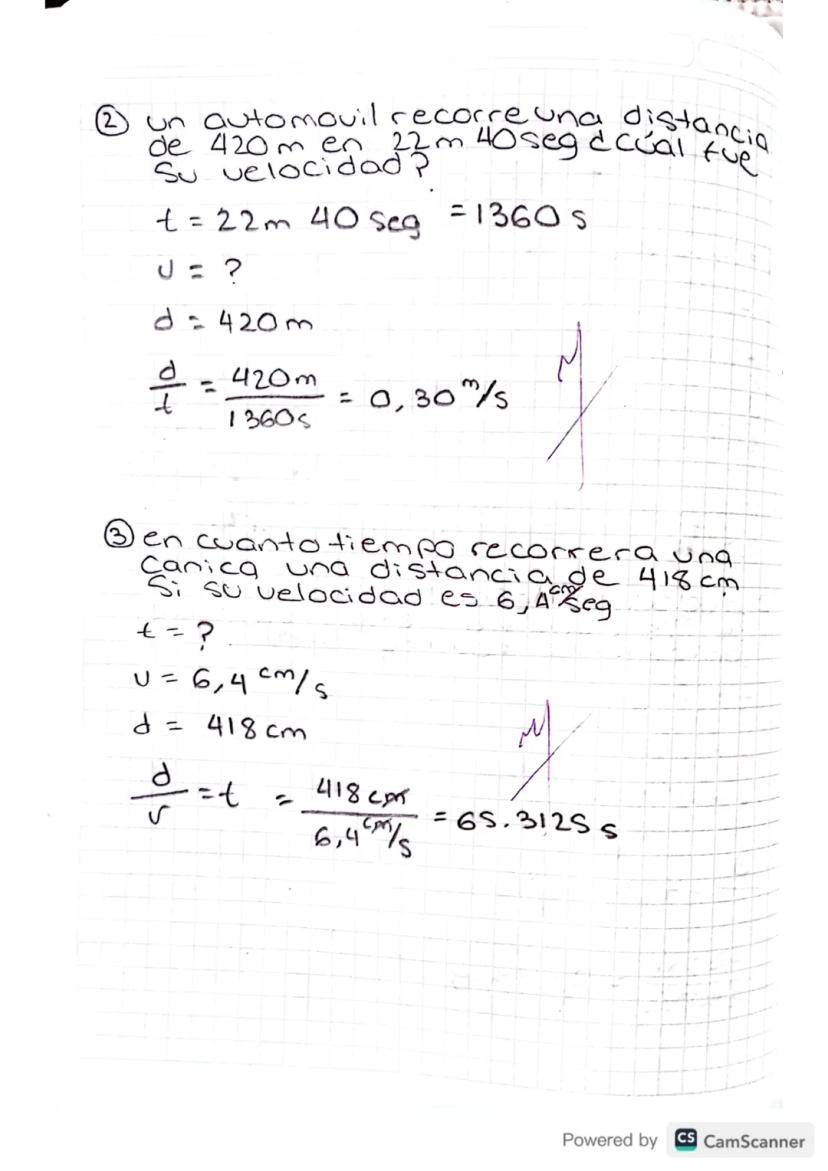 ② un automovil recorre una distancia
de 420 m en 22m 40 seg ¿cúal fue
Su velocidad?
t = 22m 40 seg = 1360 s
v = ?
d = 420 m
d/t = 420m/1360s = 0,30 m/s
③ en cuanto tiempo recorrera una
canica una distancia de 418 cm
Si su velocidad es 6,4 cm/seg
t = ?
v = 6,4 cm/s
d = 418 cm
d/v = t = 418 cm/6,4 cm/s = 65.3125 s
Powered by CS CamScanner